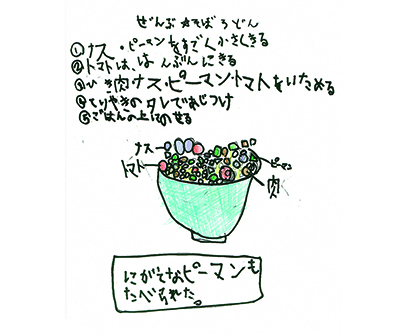 ぜんぶ☆そぼろどん
①ナス・ピーマンをすごく小さくきる
②トマトは、はんぶんにきる
③ひき肉ナス・ピーマントマトをいためる
④てりやきのタレであじつけ
⑤ごはんの上にのせる
ナス
ピーマン
トマト
肉
にがてなピーマンも
たべられた。